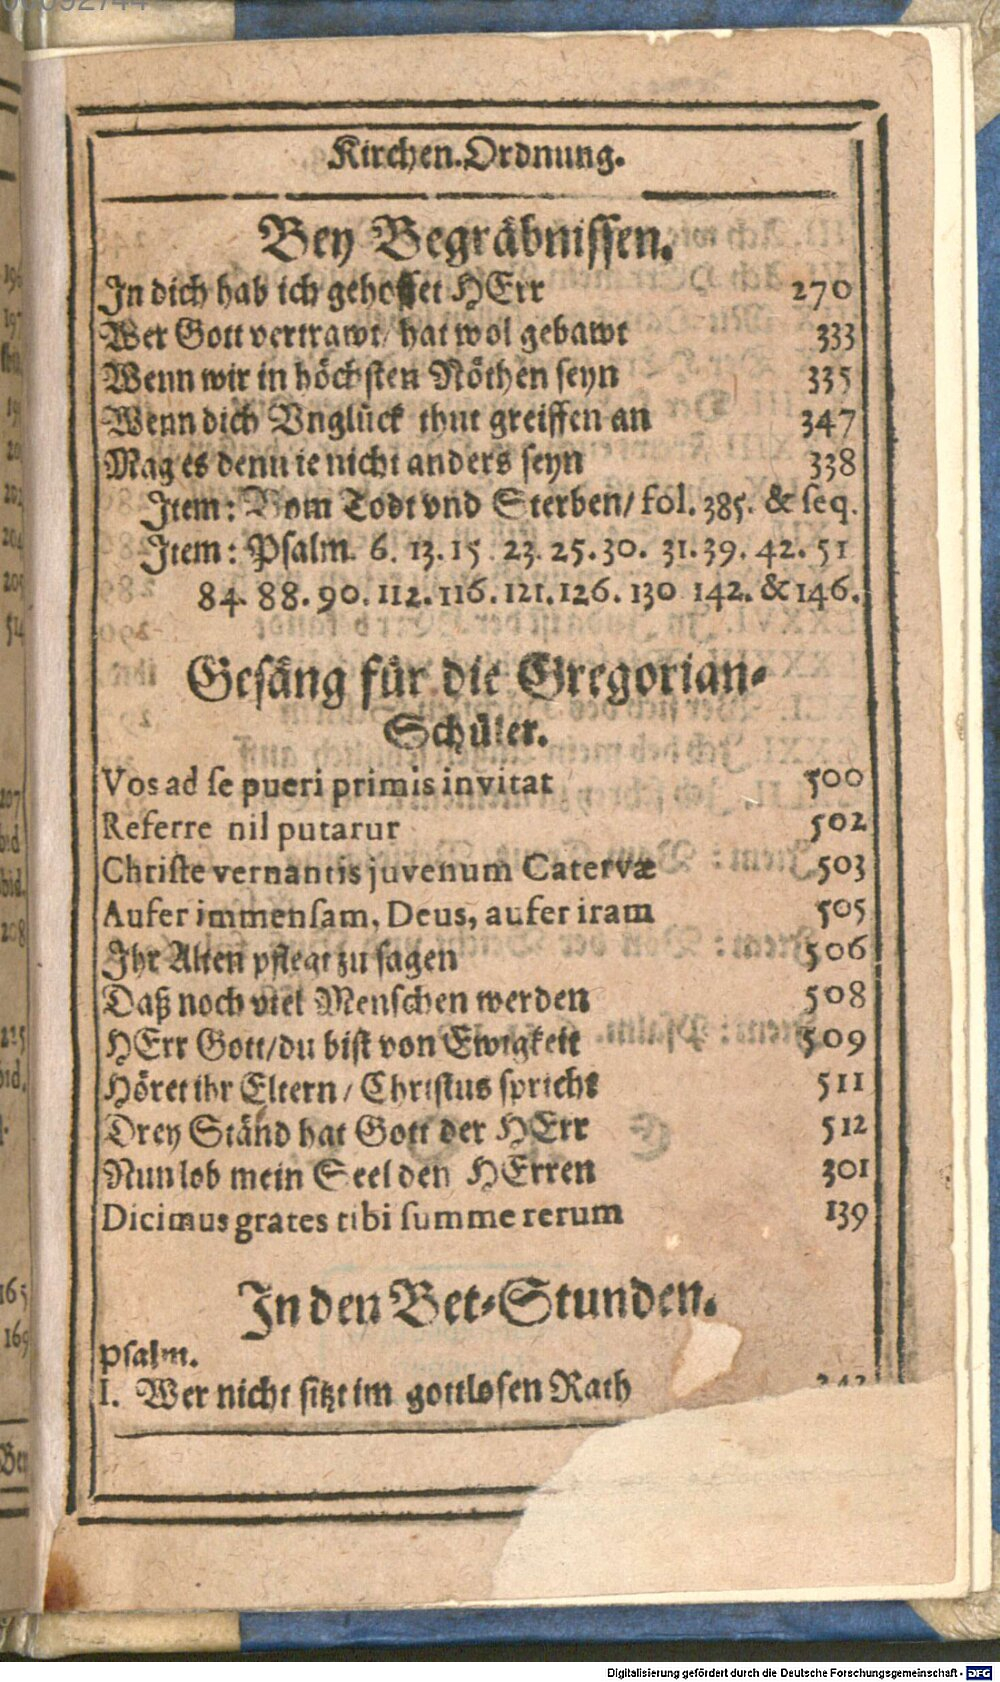 Kirchen-Ordnung.
Bey Begräbnissen.
In dich hab ich gehoffet HErr 270
Wer Gott vertrawt/ hat wol gebawt 333
Wenn wir in höchsten Nöthen seyn 335
Wenn dich Vnglück thut greiffen an 347
Mag es denn ie nicht anders seyn 338
Item: Vom Todt vnd Sterben/ fol. 385. & seq.
Item: Psalm. 6. 13. 15 23. 25. 30. 31. 39. 42. 51
84. 88. 90. 112. 116. 121. 126. 130 142. & 146.
Gesäng für die Gregorian-
Schüler.
Vos ad se pueri primis invitat 500
Referre nil putarur 502
Christe vernantis juvenum Catervæ 503
Aufer immensam, Deus, aufer iram 505
Ihr Alten pflegt zu sagen 506
Daß noch viel Menschen werden 508
HErr Gott/ du bist von Ewigkeit 509
Höret ihr Eltern/ Christus spricht 511
Drey Ständ hat Gott der HErr 512
Nun lob mein Seel den HErren 301
Dicimus grates tibi summe rerum 139
In den Bet-Stunden.
Psalm.
I. Wer nicht sitzt im gottlosen Rath
196
197
202
204
205
514
207
bid
bid.
208
225
bid.
165
169
Bey
Digitalisierung gefördert durch die Deutsche Forschungsgemeinschaft - DFG